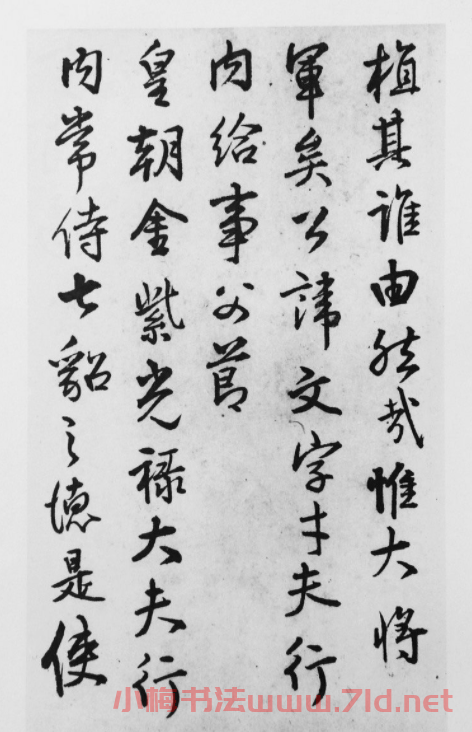 植其誰由然哉惟大将
軍矣公諱文字才夫行
内給事父節
皇朝金紫光禄大夫行
内常侍七貂之德是使
小梅书法www.7ld.net